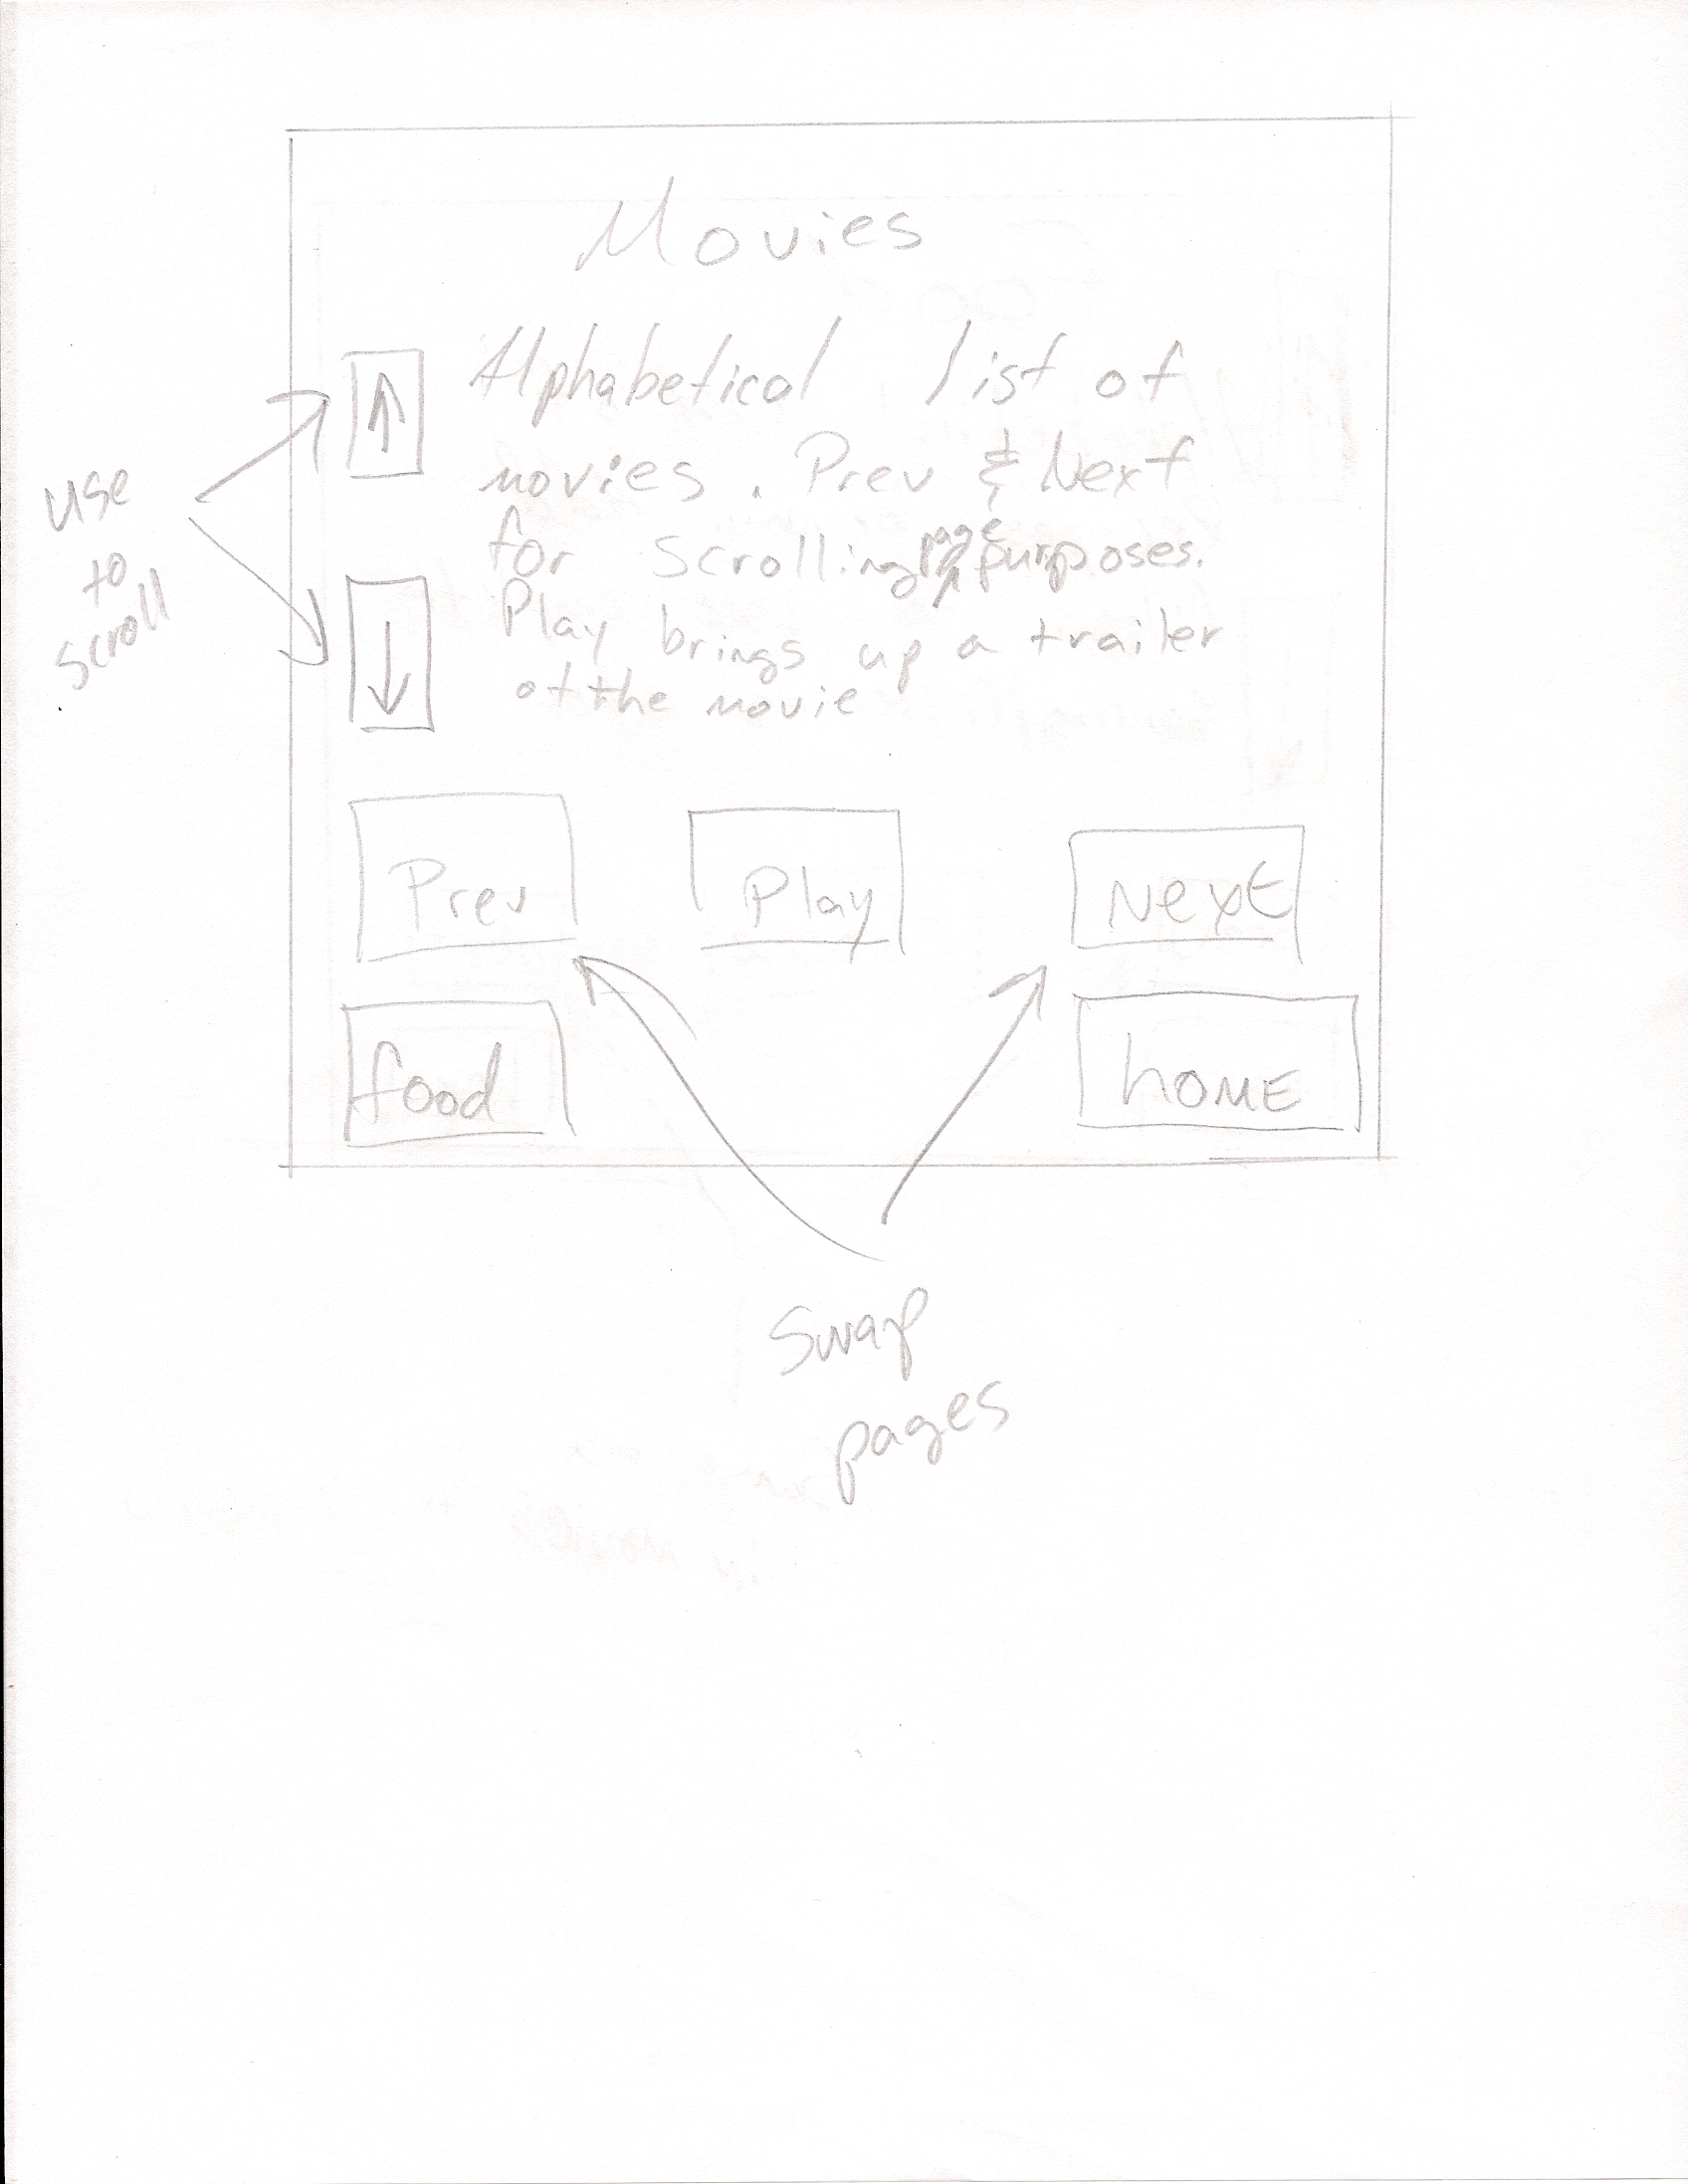 Movies
Alphabetical list of
movies. Prev & Next
for scrolling page purposes.
Play brings up a trailer
of the movie
use
to
scroll
Prev
Play
Next
food
hOME
Swap
pages